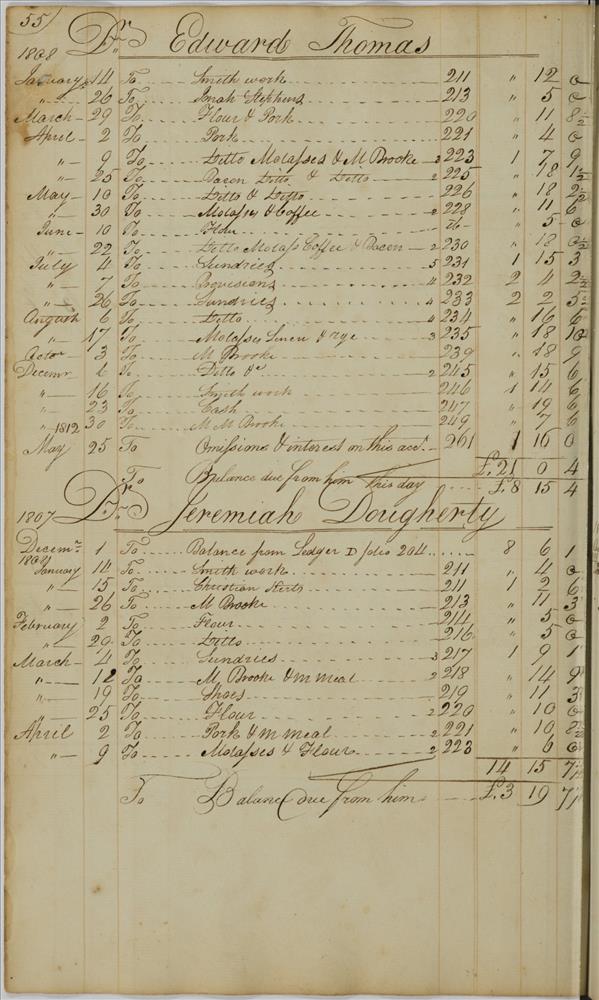 55
1808 Dr. Edward Thomas
January 14 To Smith work 211 " 12 0
" 26 To Stephens 213 " 5 0
March 29 To Flour & Pork 220 " 11 8½
April 2 To Pork 221 " 4 0
" 9 To Ditto Molasses & M Brooke 2 223 1 7 9
" 25 To Bacon Ditto & Ditto 2 225 " 18 1½
May 10 To Ditto & Ditto 226 " 18 2½
" 30 To Molasses & Coffee 2 228 " 11 6
June 10 To " 5 0
" 22 To Ditto Molass Coffee & Bacon 2 230 " 18 0½
July 4 To Sundries 5 231 1 15 3
" 7 To Provisions 4 232 2 4 2½
" 26 To Sundries 4 233 2 2 5½
August 6 To Ditto 4 234 " 16 6
" 17 To Molasses Linen & rye 3 235 " 18 10
Octor 3 To M Brooke 239 " 18 9
Decemr To Ditto &c 2 245 " 15 6
" 16 To Smith work 246 1 14 6
" 23 To Cash 247 " 19 6
" 30 To M M Brooke 249 " 7 6
1812
May 25 To Omissions & interest on this acct. 261 1 16 0
£21 0 4
To Balance due from him this day £8 15 4
1807 Dr. Jeremiah Dougherty
Decemr 1 To Balance from Ledger D folio 204 8 6 1
1808
January 14 To Smith work 211 " 4 0
" 15 To Christian 211 1 2 6
" 26 To M Brooke 213 " 11 3
February 2 To Flour 214 " 5 0
" 20 To Ditto 216 " 5 0
March 4 To Sundries 3 217 1 9 1
" 12 To M Brooke & m meal 2 218 " 14 9
" 19 To Shoes 219 " 11 3
" 25 To Flour 2 220 " 10 0
April 2 To Pork & m meal 2 221 " 10 8½
" 9 To Molasses & Flour 2 223 " 6 0
14 15 7½
To Balance due from him £3 19 7½